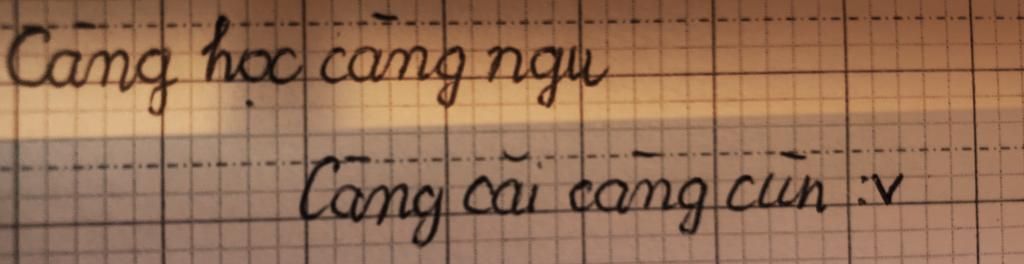 Càng học càng ngu
Càng cãi càng cùn :v